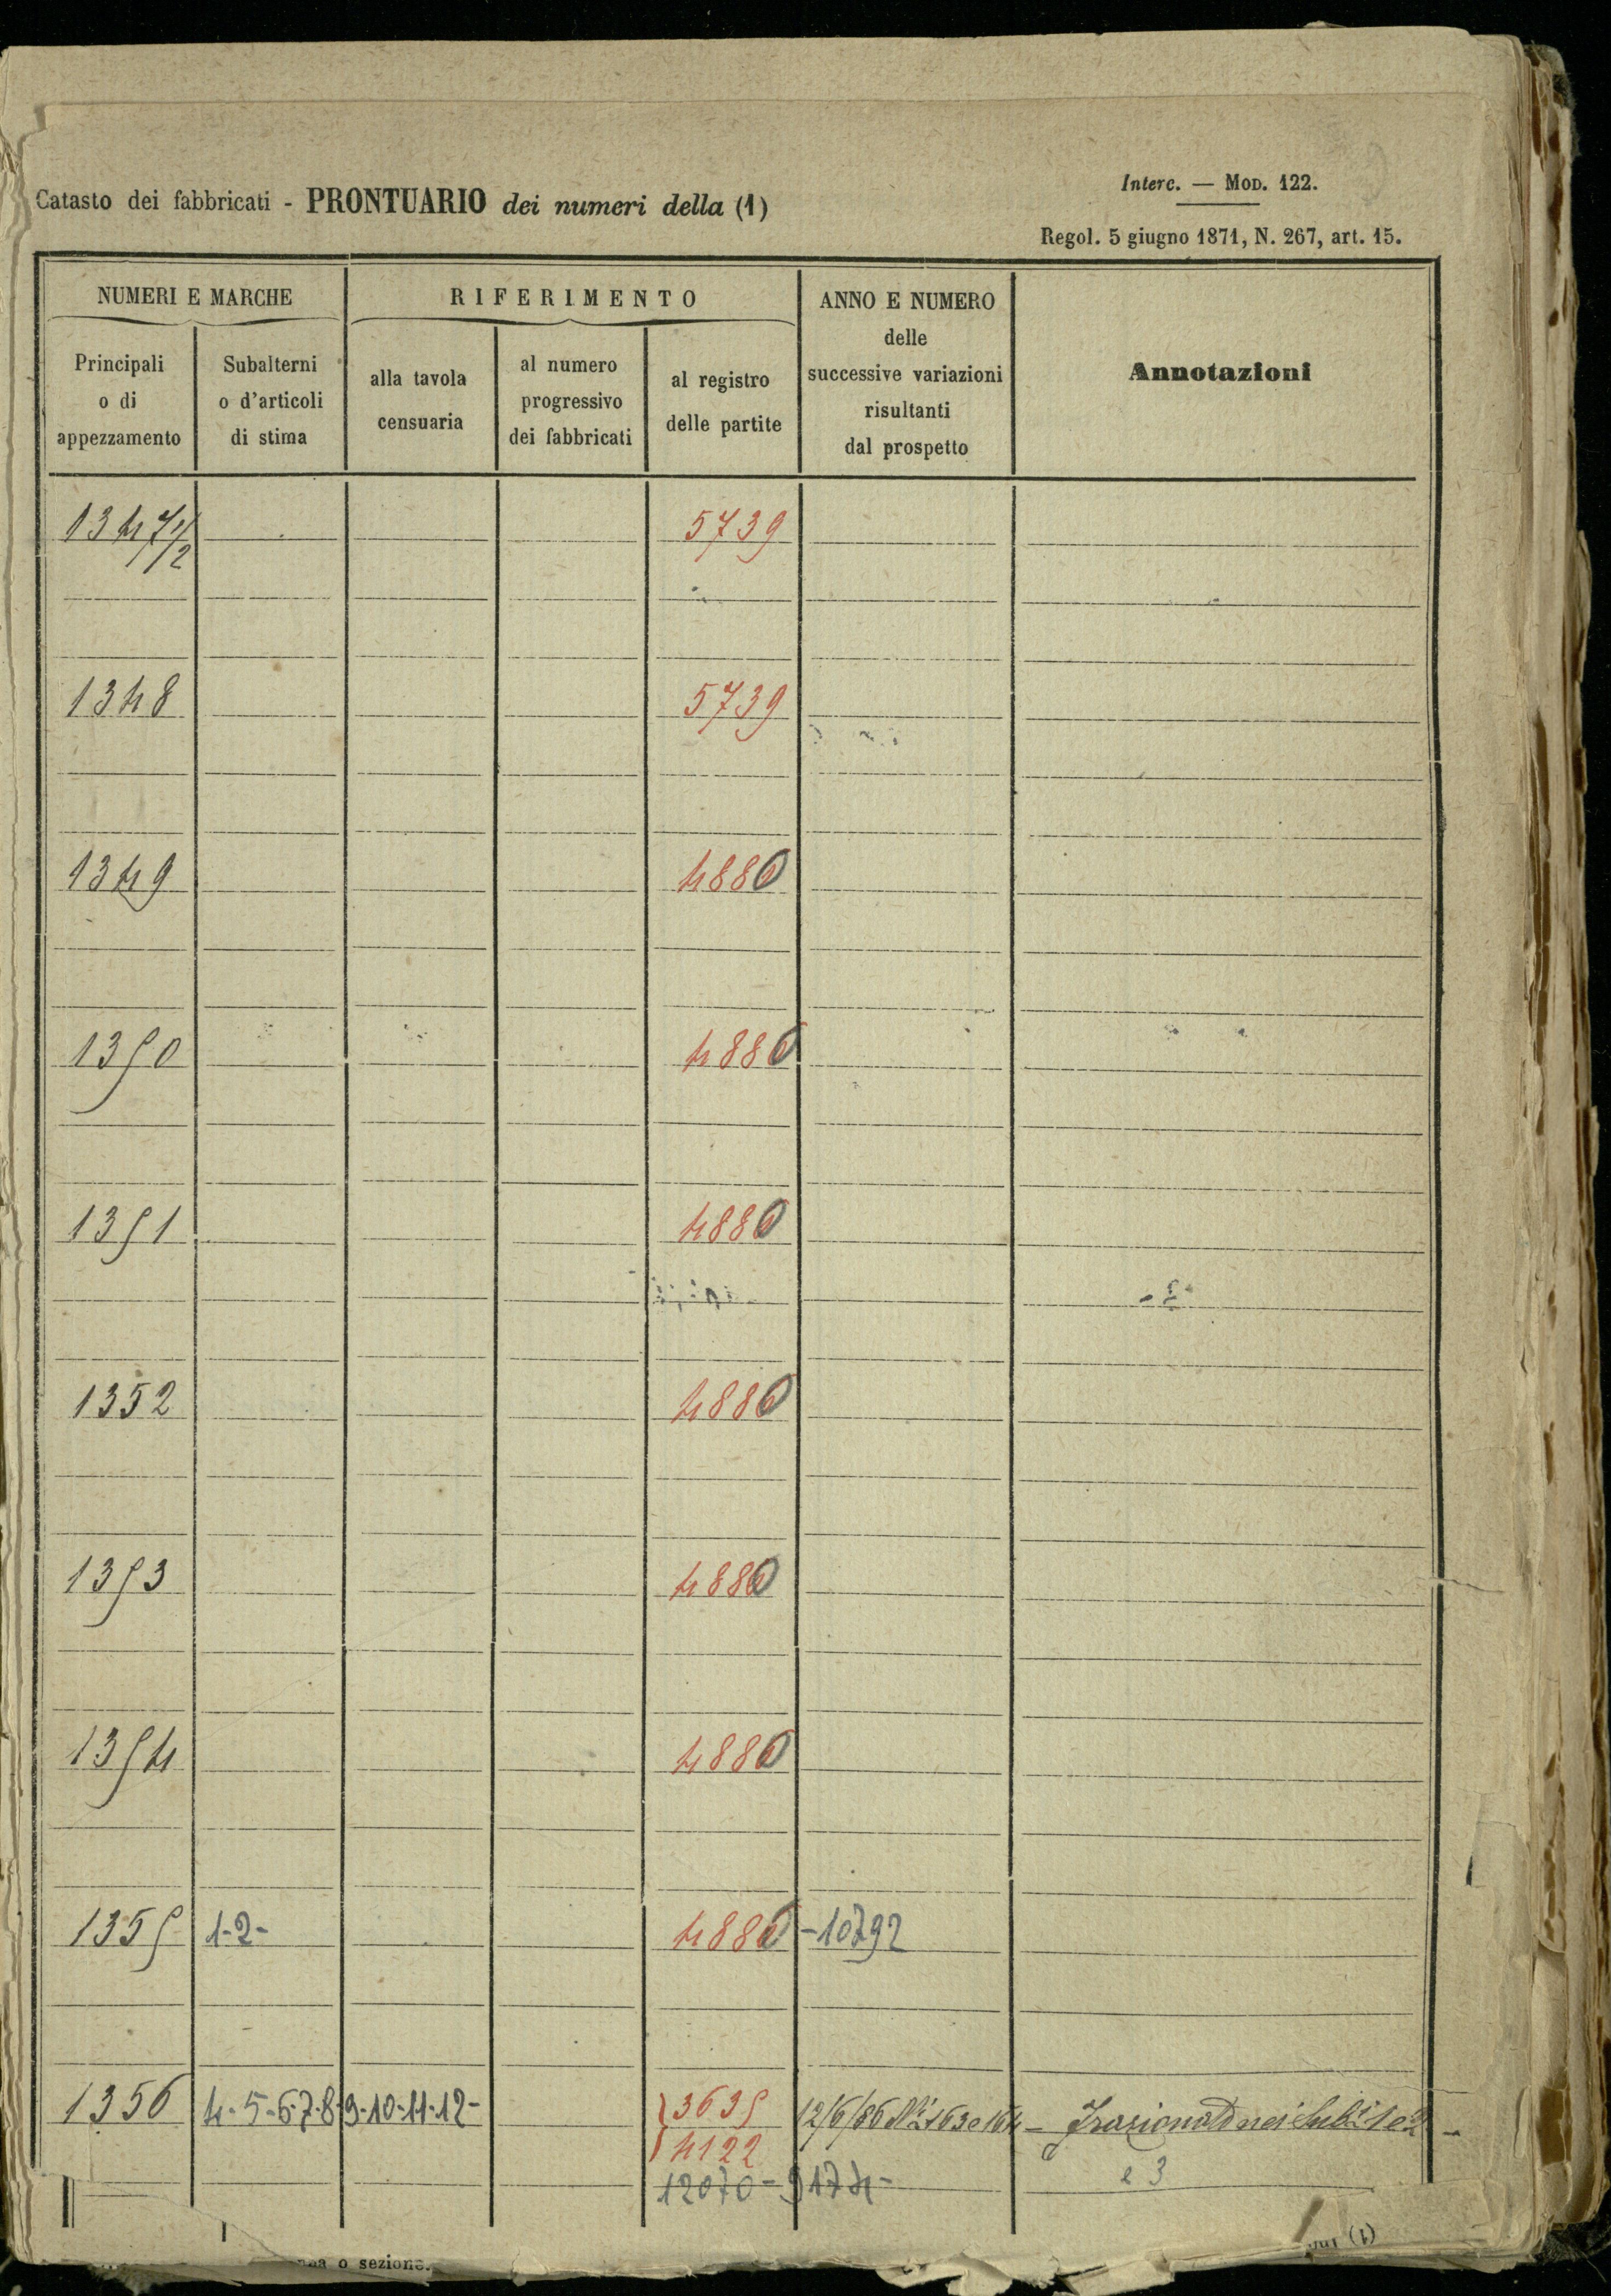 Catasto dei fabbricati - PRONTUARIO dei numeri della (1)
Interc. — Mod. 122.
Regol. 5 giugno 1871, N. 267, art. 15.
NUMERI E MARCHE
RIFERIMENTO
ANNO E NUMERO
delle
successive variazioni
risultanti
dal prospetto
Annotazioni
Principali
o di
appezzamento
Subalterni
o d'articoli
di stima
alla tavola
censuaria
al numero
progressivo
dei fabbricati
al registro
delle partite
1347 1/2 5739
1348 5739
1349 4880
1350 4880
1351 4880
1352 4880
1353 4880
1354 4880
1355 1-2- 4880 -10792
1356 4-5-6-7-8-9-10-11-12- 3635 12/6/86 Ni 163 e 164 - Frazionato nei Subi 1 e 2 -
4122
12070 - 9174 - e 3
o sezione.
(1)